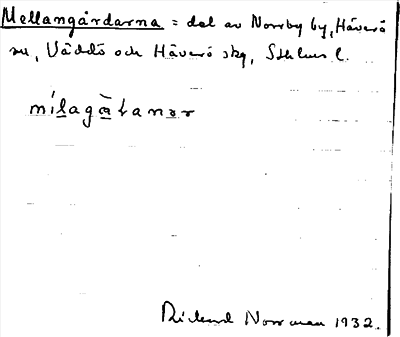 Mellangårdarna = del av Norrby by, Häverö
sn, Väddö och Häverö skg, Sthlms l.
mìlagàtanər
Rickard Norrman 1932.